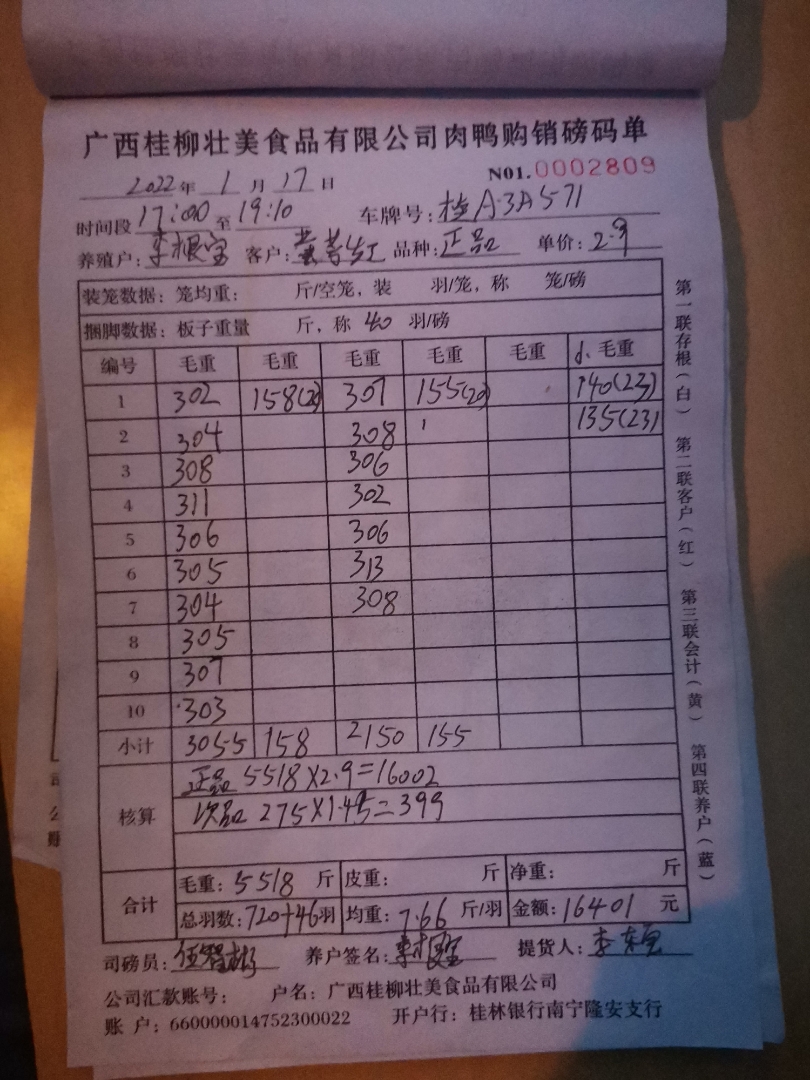 广西桂柳壮美食品有限公司肉鸭购销磅码单
N01.0002809
2022年 1 月 17 日
时间段 17:00 至 19:10 车牌号: 桂A·3A571
养殖户: 李根宝 客户: 品种: 正品 单价: 2.9
装笼数据: 笼均重: 斤/空笼, 装 羽/笼, 称 笼/磅
捆脚数据: 板子重量 斤, 称 40 羽/磅
编号 毛重 毛重 毛重 毛重 毛重 毛重
1 302 158(20) 307 155(20) 140(23)
2 304 308 135(23)
3 308 306
4 311 302
5 306 306
6 305 313
7 304 308
8 305
9 307
10 303
小计 3055 158 2150 155
核算
正品 5518X2.9=16002
次品 275X1.45=399
合计
毛重: 5518 斤 皮重: 斤 净重: 斤
总羽数: 720+46羽 均重: 7.66 斤/羽 金额: 16401 元
司磅员: 养户签名: 提货人:
公司汇款账号: 户名: 广西桂柳壮美食品有限公司
账 户: 660000014752300022 开户行: 桂林银行南宁隆安支行
第一联存根(白) 第二联客户(红) 第三联会计(黄) 第四联养户(蓝)